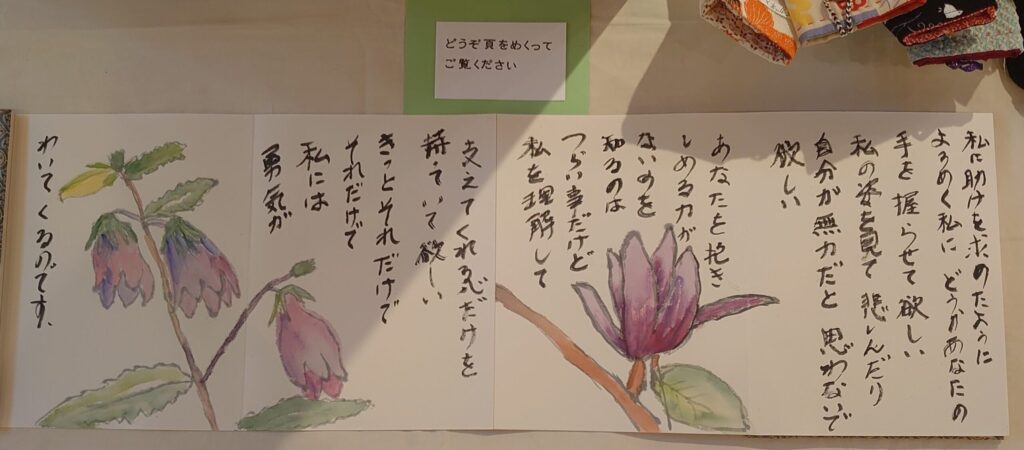 どうぞ頁をめくって
ご覧ください
私に助けを求のたように
よろめく私に どうかあなたの
手を握らせて欲しい
私の姿を見て 悲しんだり
自分が無力だと 思わないで
欲しい
あなたを抱き
しめる力が
ないのを
知るのは
つらい事だけど
私を理解して
支えてくれる心だけを
持っていて欲しい
きっとそれだけで
それだけで
私には
勇気が
わいてくるのです、